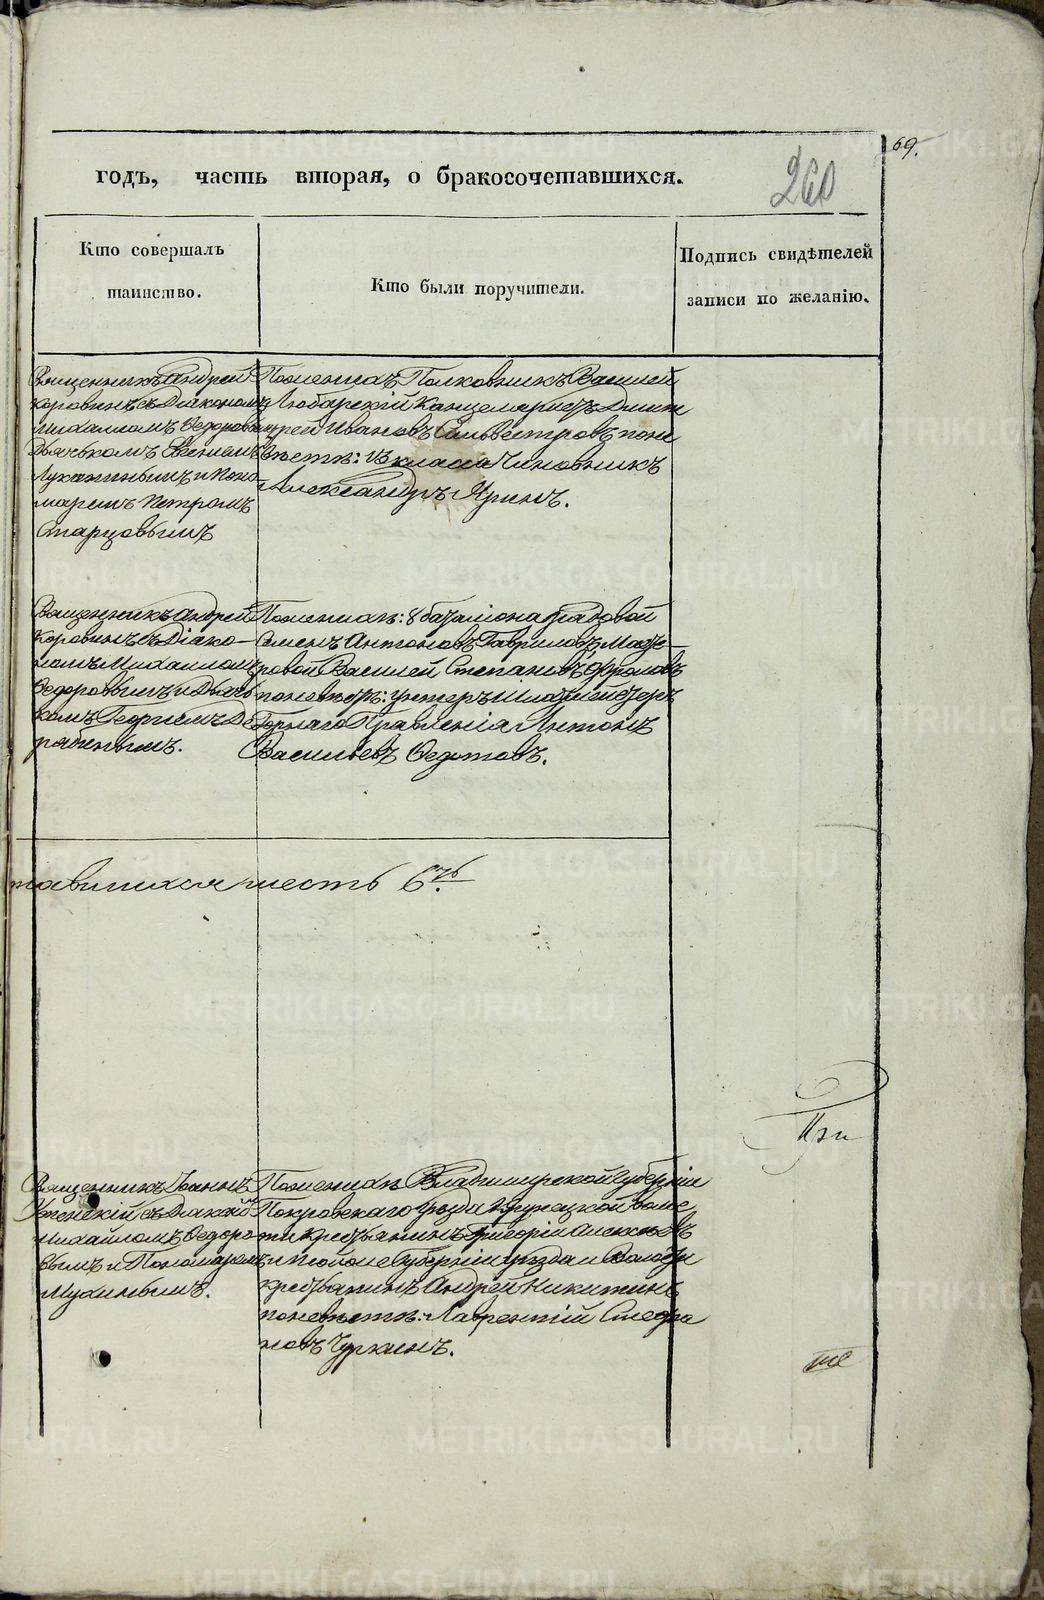 69.
годъ, часть вторая, о бракосочетавшихся.
260
Кто совершалъ
таинство.
Кто были поручители.
Подпись свидѣтелей
записи по желанію.
Священникъ Андрей
Коровинъ съ Діакономъ
Михаиломъ Ѳедоровы
Дьячкомъ Евгеніемъ
Лукашинымъ и Поно
маремъ Петромъ
Старцовымъ
По женихѣ Полковникъ Василей
Любарскій Канцеляристъ Дмит
рей Ивановъ Сильвестровъ по не
вѣстѣ: класса Чиновникъ
Александръ Яринъ.
Священникъ Андрей
Коровинъ съ Діако-
номъ Михаиломъ
Ѳедоровымъ и Дьяч
комъ Георгіемъ Де
рябинымъ.
По женихѣ: 8 баталіона рядовой
Семенъ Антоновъ Гавриловъ Масте-
ровой Василей Степановъ Фроловъ
по невѣстѣ: Унтеръ Шихтмейстеръ
Горнаго Правленія Антонъ
Васильевъ Ѳедотовъ.
тавшихся шесть 6ть.
При
Священникъ Іоаннъ
Успенскій съ Діакономъ
Михайломъ Ѳедоро
вымъ и Пономаремъ
Мухинымъ.
По женихѣ Владимирской Губерніи
Покровскаго Уѣзда Воло
сти Крестьянинъ Григорій Алексѣевъ
и той же Губерніи Уѣзда и Волости
крестьянинъ Андрей Никитинъ
по невѣстѣ: Лаврентій Стефа
новъ Чуркинъ.